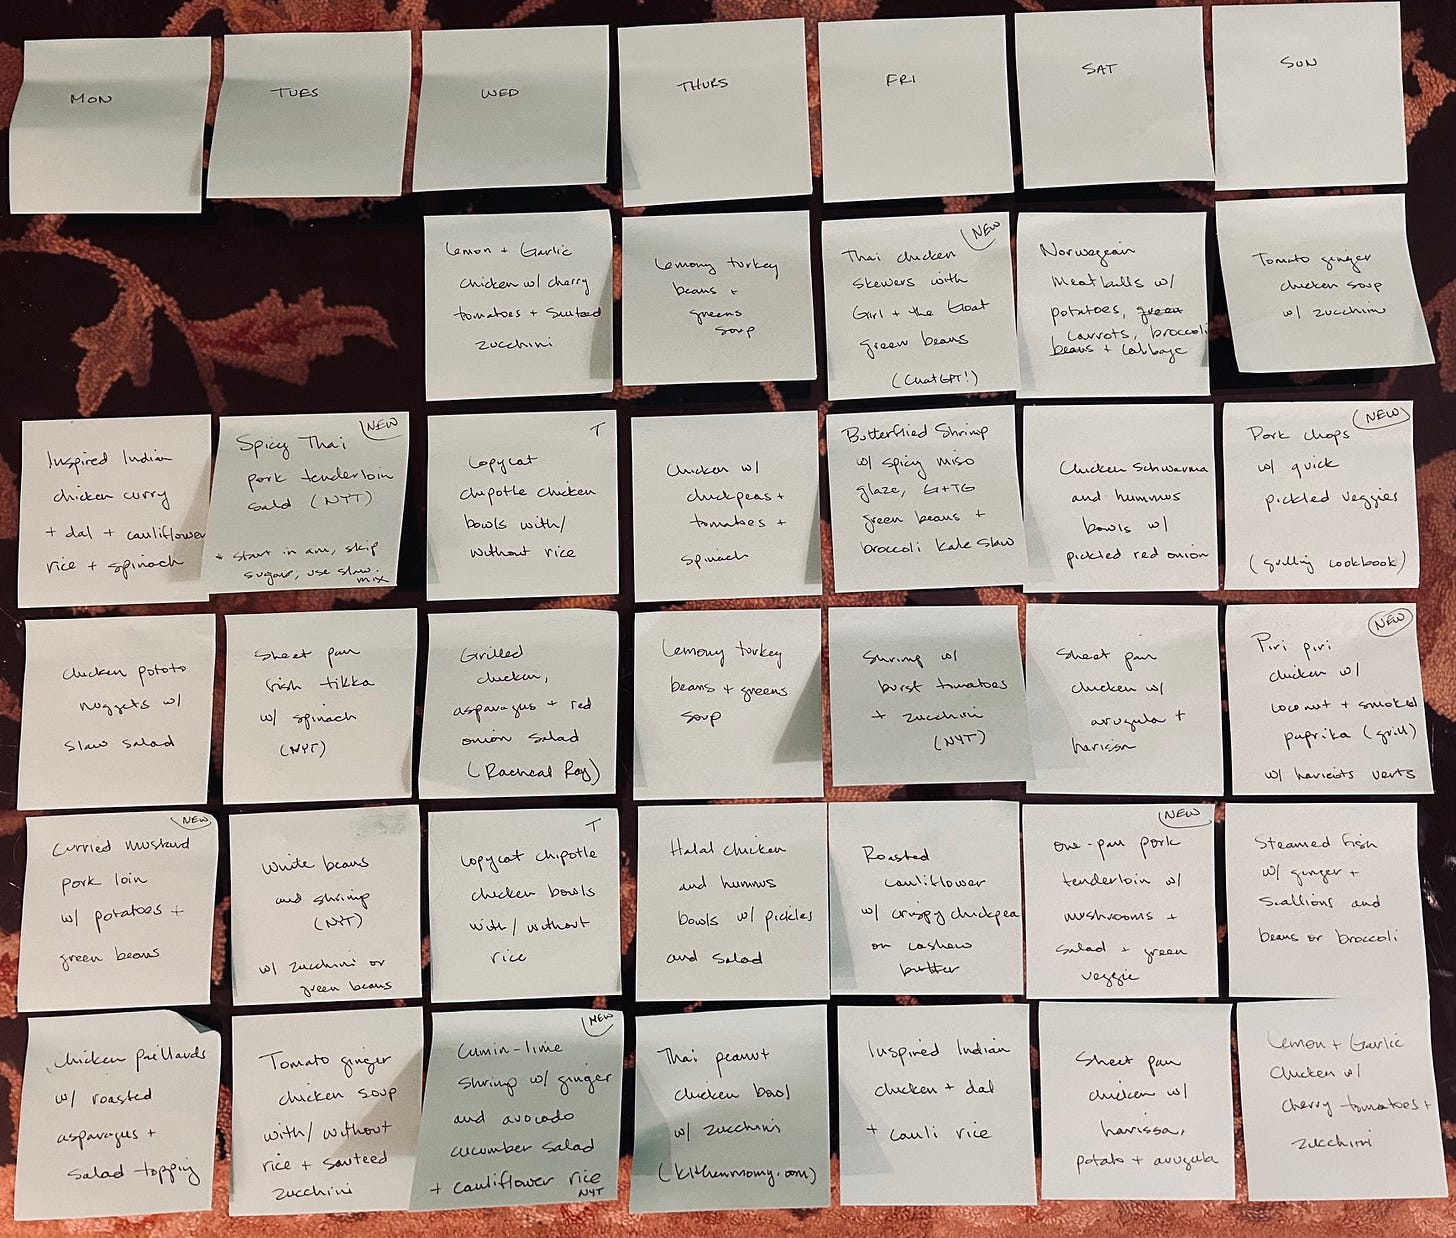 MON
TUES
WED
THURS
FRI
SAT
SUN
Lemon + Garlic
chicken w/ cherry
tomatoes + Sauteed
zucchini
Lemony turkey
beans +
greens
soup
NEW
Thai chicken
skewers with
Girl + the Goat
green beans
(ChatGPT!)
Norwegian
meatballs w/
potatoes, green
carrots, broccoli
beans + cabbage
Tomato ginger
chicken soup
w/ zucchini
Inspired Indian
chicken curry
+ dal + cauliflower
rice + spinach
NEW
Spicy Thai
pork tenderloin
salad (NYT)
* start in am, skip
sugar, use slaw
mix
T
Copycat
chipotle chicken
bowls with/
without rice
Chicken w/
chickpeas +
tomatoes +
spinach
Butterflied Shrimp
w/ spicy miso
glaze, G+TG
green beans +
broccoli kale slaw
Chicken Schwarma
and hummus
bowls w/
pickled red onion
NEW
Pork chops
w/ quick
pickled veggies
(grilling cookbook)
Chicken potato
nuggets w/
slaw salad
Sheet pan
fish tikka
w/ spinach
(NYT)
Grilled
chicken,
asparagus + red
onion salad
(Racheal Ray)
Lemony turkey
beans + greens
soup
Shrimp w/
burst tomatoes
+ zucchini
(NYT)
Sheet pan
chicken w/
arugula +
harissa
NEW
Piri piri
chicken w/
coconut + smoked
paprika (grill)
w/ haricots verts
NEW
Curried mustard
pork loin
w/ potatoes +
green beans
White beans
and shrimp
(NYT)
w/ zucchini or
green beans
T
Copycat chipotle
chicken bowls
with/without
rice
Halal chicken
and hummus
bowls w/ pickles
and salad
Roasted
cauliflower
w/ crispy chickpea
on cashew
butter
NEW
one-pan pork
tenderloin w/
mushrooms +
salad + green
veggie
Steamed fish
w/ ginger +
scallions and
beans or broccoli
Chicken paillards
w/ roasted
asparagus +
salad topping
Tomato ginger
chicken soup
with/without
rice + sauteed
zucchini
NEW
Cumin-lime
shrimp w/ ginger
and avocado
cucumber salad
+ cauliflower rice
NYT
Thai peanut
chicken bowl
w/ zucchini
(kitchenmomy.com)
Inspired Indian
chicken + dal
+ cauli rice
Sheet pan
chicken w/
harissa,
potato + arugula
Lemon + Garlic
Chicken w/
cherry tomatoes +
zucchini